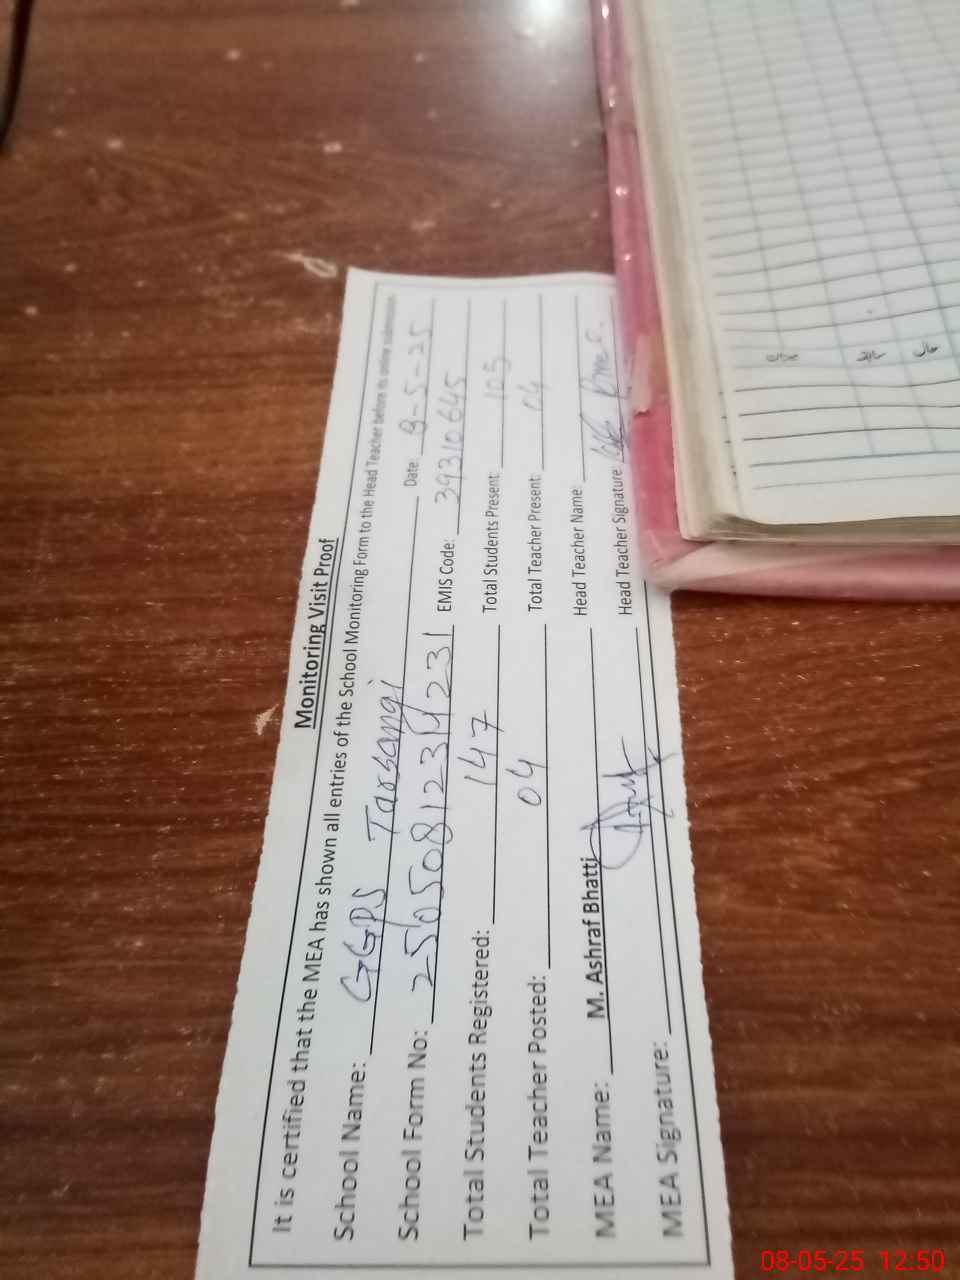 Monitoring Visit Proof
It is certified that the MEA has shown all entries of the School Monitoring Form to the Head Teacher before its online submission
School Name: GGPS Tarsangi Date: 8-5-25
School Form No: 25050812314231 EMIS Code: 39310645
Total Students Registered: 147 Total Students Present: 105
Total Teacher Posted: 04 Total Teacher Present: 04
MEA Name: M. Ashraf Bhatti Head Teacher Name:
MEA Signature: Head Teacher Signature
میزان سابقہ حال
08-05-25 12:50